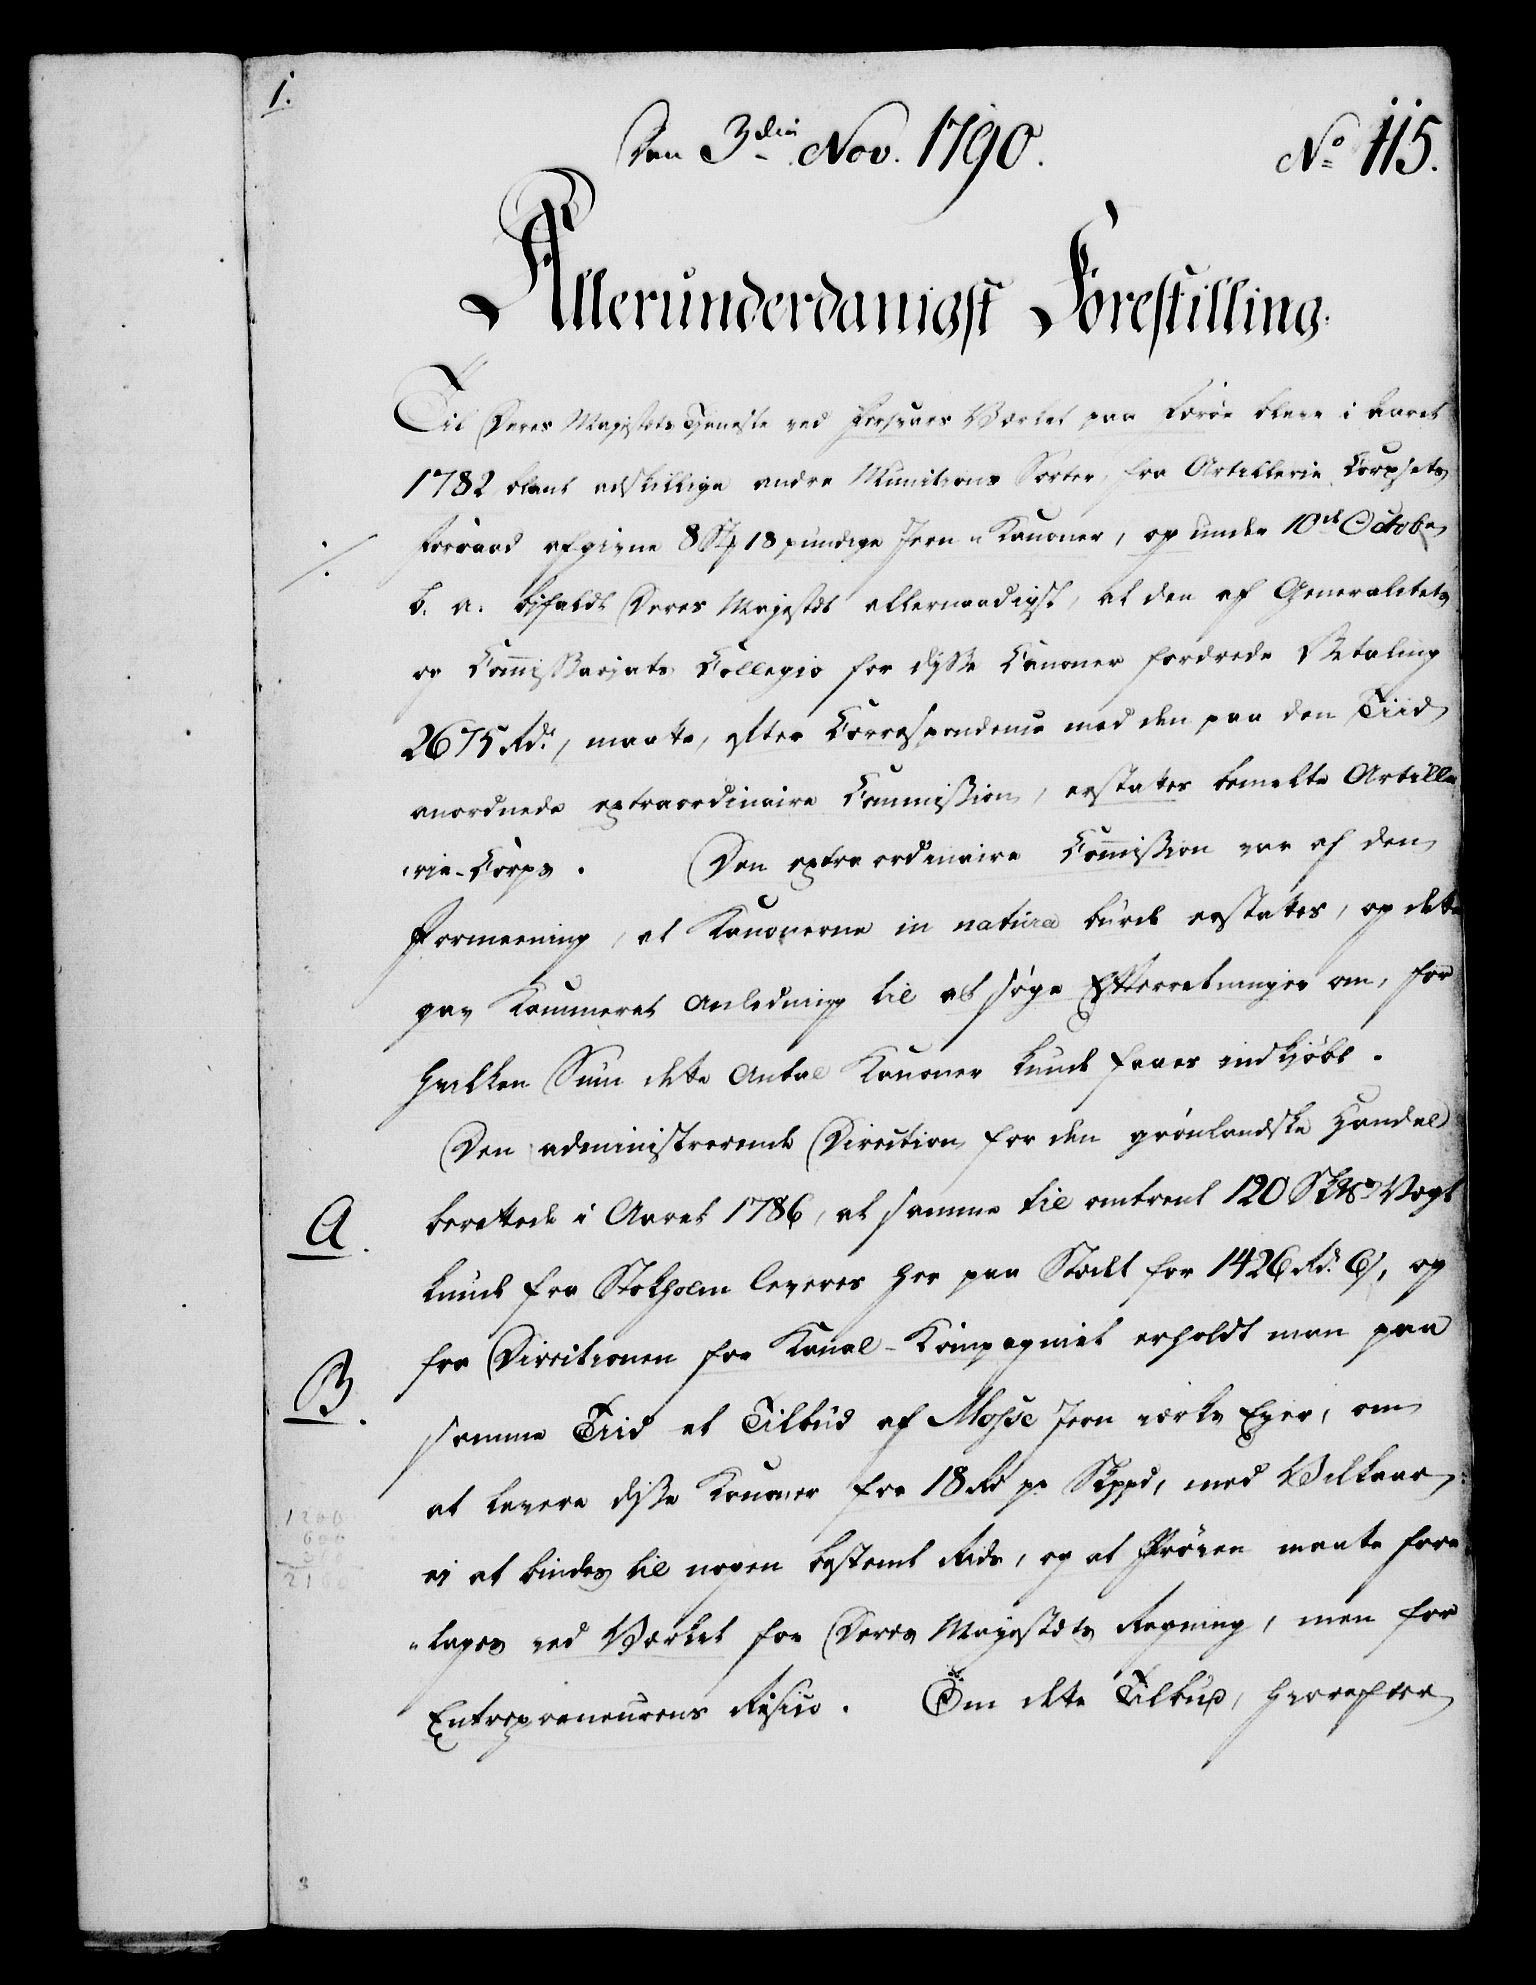 1.
Den 3die Nov. 1790.
No 115.
Allerunderdanigst Forestilling.
Til Deres Majestæts Tjeneste ved Forsvars Værket paa Færøe bleve i Aaret
1782 blant adskillige andre Munitions Sorter, fra Artillerie Corpsets
Forraad afgivne 8 St 18 pundige Jern-Kanoner, og under 10de Octobr
s. A. bifaldt Deres Majestæt allernaadigst, at den af Generalitets
og Commissariats Collegio for disse Canoner fordrede Betaling
2675 Rd., maate, efter Correspondence med den paa den Tiid
anordnede extraordinaire Commission, erstattes bemelte Artille
rie-Corps. Den extraordinaire Commission var af den
Formeening, at Kanonerne in natura burde erstattes, og dette
gav Kammeret Anledning til at søge Efterretninger om, for
hvilken Sum dette Antal Kanoner kunde faaes indkjøbt.
Den administrerende Direction for den grønlandske Handel
A. berettede i Aaret 1786, at samme til omtrent 120 Sk℔ Vægt
kunde fra Stokholm leveres her paa Stædet for 1426 Rd. 6 s, og
B. fra Directionen for Kanal-Kompagniet erholdt man paa
samme Tiid et Tilbud af Mosse Jern værks Eger, om
at levere disse Kanoner for 18 Rd pr Skppd, med Vilkaar:
ei at bindes til nogen bestemt Tide, og at Prøven maate fore
tages ved Værket for Deres Majestæts Regning, men for
Entrepreneurens Risico. Om dette Tilbud, hvorefter
1200
600
300
2100